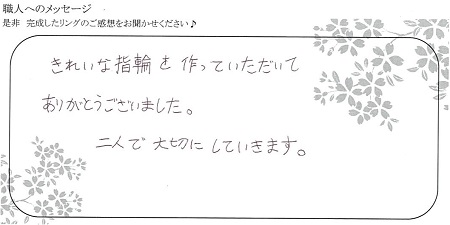 職人へのメッセージ
是非 完成したリングのご感想をお聞かせください♪
きれいな指輪を作っていただいて
ありがとうございました。
二人で大切にしていきます。